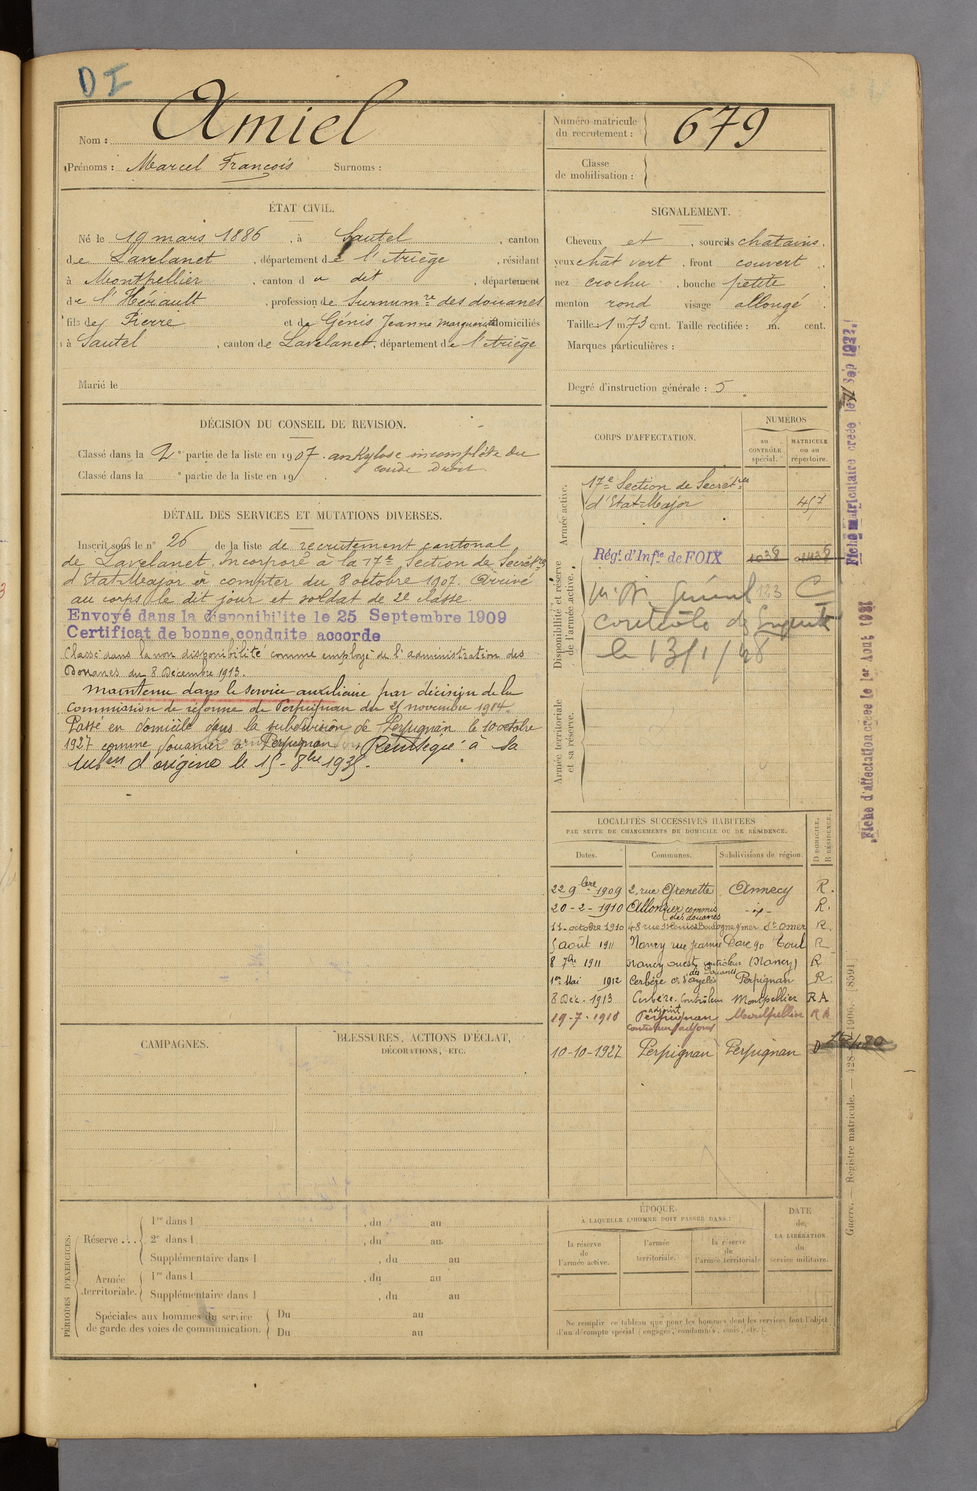 DI
Nom : Amiel
Prénoms : Marcel François Surnoms :
Numéro matricule du recrutement : 679
Classe de mobilisation :
ÉTAT CIVIL.
Né le 19 mars 1886, à Sautel, canton
de Lavelanet, département de l'Ariège, résidant
à Montpellier, canton du dit, département
de l'Hérault, profession de Surnumre des douanes
fils de Pierre et de Génis Jeanne Marguerite domiciliés
à Sautel, canton de Lavelanet, département de l'Ariège
Marié le
SIGNALEMENT.
Cheveux et, sourcils chatains.
yeux chât vert, front couvert,
nez crochu, bouche petite,
menton rond visage allongé.
Taille : 1 m. 73 cent. Taille rectifiée : m. cent.
Marques particulières :
Degré d'instruction générale : 5
DÉCISION DU CONSEIL DE REVISION.
Classé dans la 2e partie de la liste en 1907. ankylose incomplète du
coude droit
Classé dans la e partie de la liste en 19
DÉTAIL DES SERVICES ET MUTATIONS DIVERSES.
Inscrit sous le n° 26 de la liste de recrutement cantonal
de Lavelanet. Incorporé à la 17e Section de Secrétres
d'Etat-Major à compter du 8 octobre 1907. Arrivé
au corps le dit jour et soldat de 2e classe.
Envoyé dans la disponibilité le 25 Septembre 1909
Certificat de bonne conduite accordé
Classé dans la non disponibilité comme employé de l'administration des
Douanes du 8 Décembre 1913.
Maintenu dans le service auxiliaire par décision de la
Commission de réforme de Perpignan du 25 novembre 1914.
Passé en domicile dans la subdivision de Perpignan le 10 octobre
1927 comme douanier à Perpignan Réintégré à sa
subon d'origine le 15-8bre 1935.
CORPS D'AFFECTATION.
NUMÉROS
au CONTRÔLE spécial.
MATRICULE ou au répertoire.
Armée active.
17e Section de Secrétres
d'Etat-Major 457
Disponibilité et réserve de l'armée active.
Régt. d'Infie de FOIX
le 13/1/28
Armée territoriale et sa réserve.
Fiche matriculaire créée le Sep 1932.
Fiche d'affectation créée le 1er Aout 1931
LOCALITÉS SUCCESSIVES HABITÉES
PAR SUITE DE CHANGEMENTS DE DOMICILE OU DE RÉSIDENCE.
Dates. Communes. Subdivisions de région. D DOMICILE. R RÉSIDENCE.
22 9bre 1909 2, rue Grenette Annecy R.
20-2-1910 Allonzier commis des douanes -id- R.
11-octobre 1910 48 rue St Louis Boulogne s/mer St Omer R.
5 août 1911 Nancy rue Jeanne Darc 90 Toul R
8 7bre 1911 Nancy ouest, contrôleur des Douanes (Nancy) R
1er Mai 1912 Cerbère Perpignan R.
8 Déc. 1913 Cerbère. Contrôleur Montpellier RA
19-7-1918 Perpignan contrôleur adjoint Montpellier RA
10-10-1927 Perpignan Perpignan D
CAMPAGNES.
BLESSURES, ACTIONS D'ÉCLAT,
DÉCORATIONS, ETC.
PÉRIODES D'EXERCICES.
Réserve... 1re dans l , du au
2e dans l , du au
Supplémentaire dans l , du au
Armée territoriale. 1re dans l , du au
Supplémentaire dans l , du au
Spéciales aux hommes du service de garde des voies de communication. Du au
Du au
ÉPOQUE
À LAQUELLE L'HOMME DOIT PASSER DANS :
la réserve de l'armée active.
l'armée territoriale.
la réserve de l'armée territoriale
DATE de LA LIBÉRATION du service militaire.
Ne remplir ce tableau que pour les hommes dont les services font l'objet
d'un décompte spécial (engagés, condamnés, omis, etc.).
Guerre. — Registre matricule.